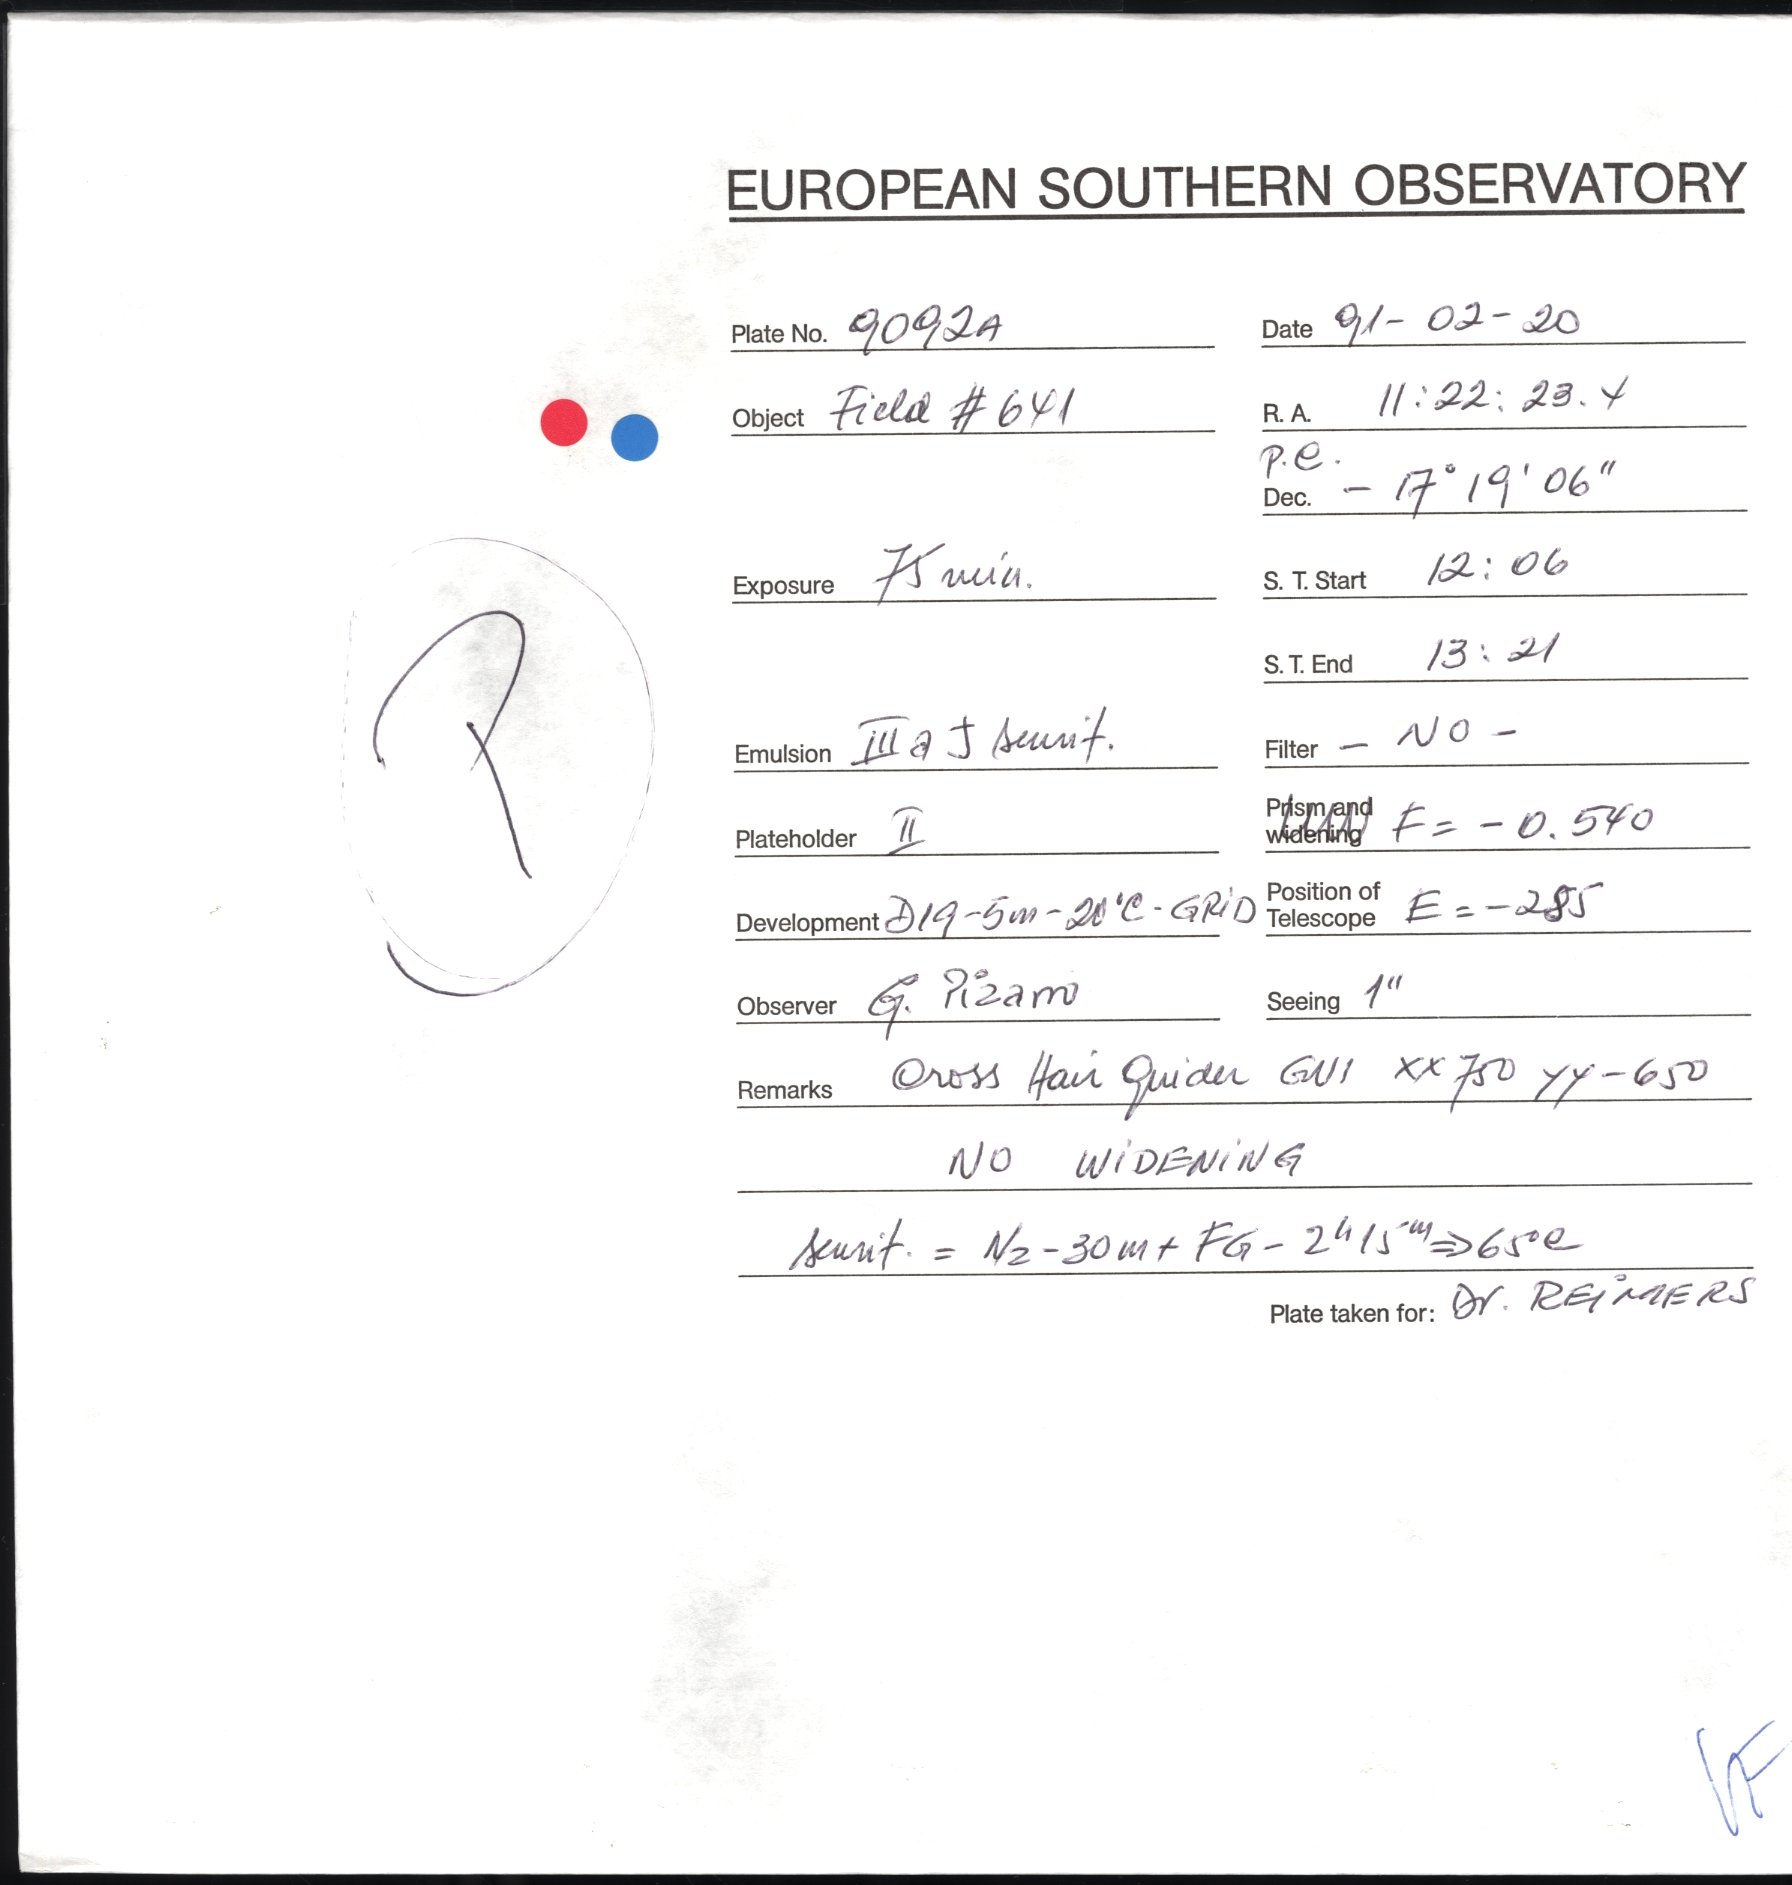 EUROPEAN SOUTHERN OBSERVATORY
Plate No. 9092A Date 91-02-20
Object Field # 641 R. A. 11:22:23.4
p.e.
Dec. - 17° 19' 06"
Exposure 75 min. S. T. Start 12:06
S. T. End 13:21
Emulsion III a J sensit. Filter - NO -
Plateholder II Prism and widening F = - 0.540
Development D19-5m-20°C-GRID Position of Telescope E = -285
Observer G. Pizarro Seeing 1"
Remarks Cross Hair Guider GN1 xx 750 yy -650
NO WIDENING
sensit. = N2-30m + FG - 2h15m => 65°C
Plate taken for: Dr. REIMERS